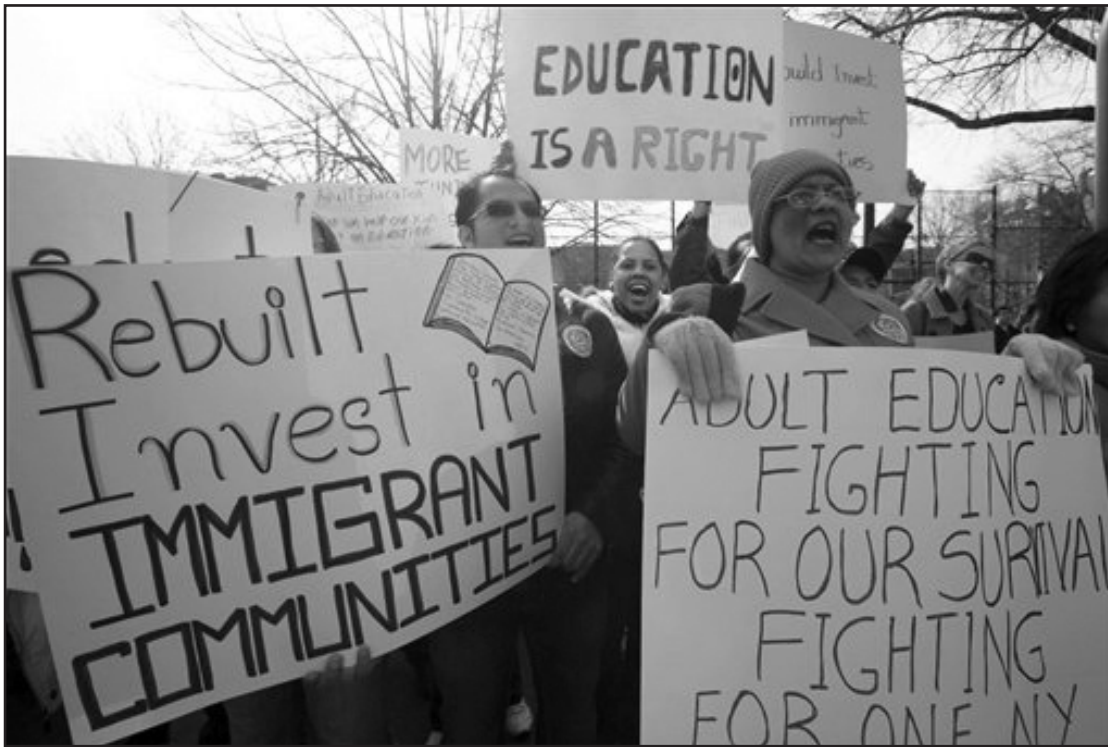 EDUCATION
IS A RIGHT
ould Invest
mmigrant
ties
MORE
Adult Education
Rebuilt
Invest in
IMMIGRANT
COMMUNITIES
ADULT EDUCATION
FIGHTING
FOR OUR SURVIVAL
FIGHTING
FOR ONE NY